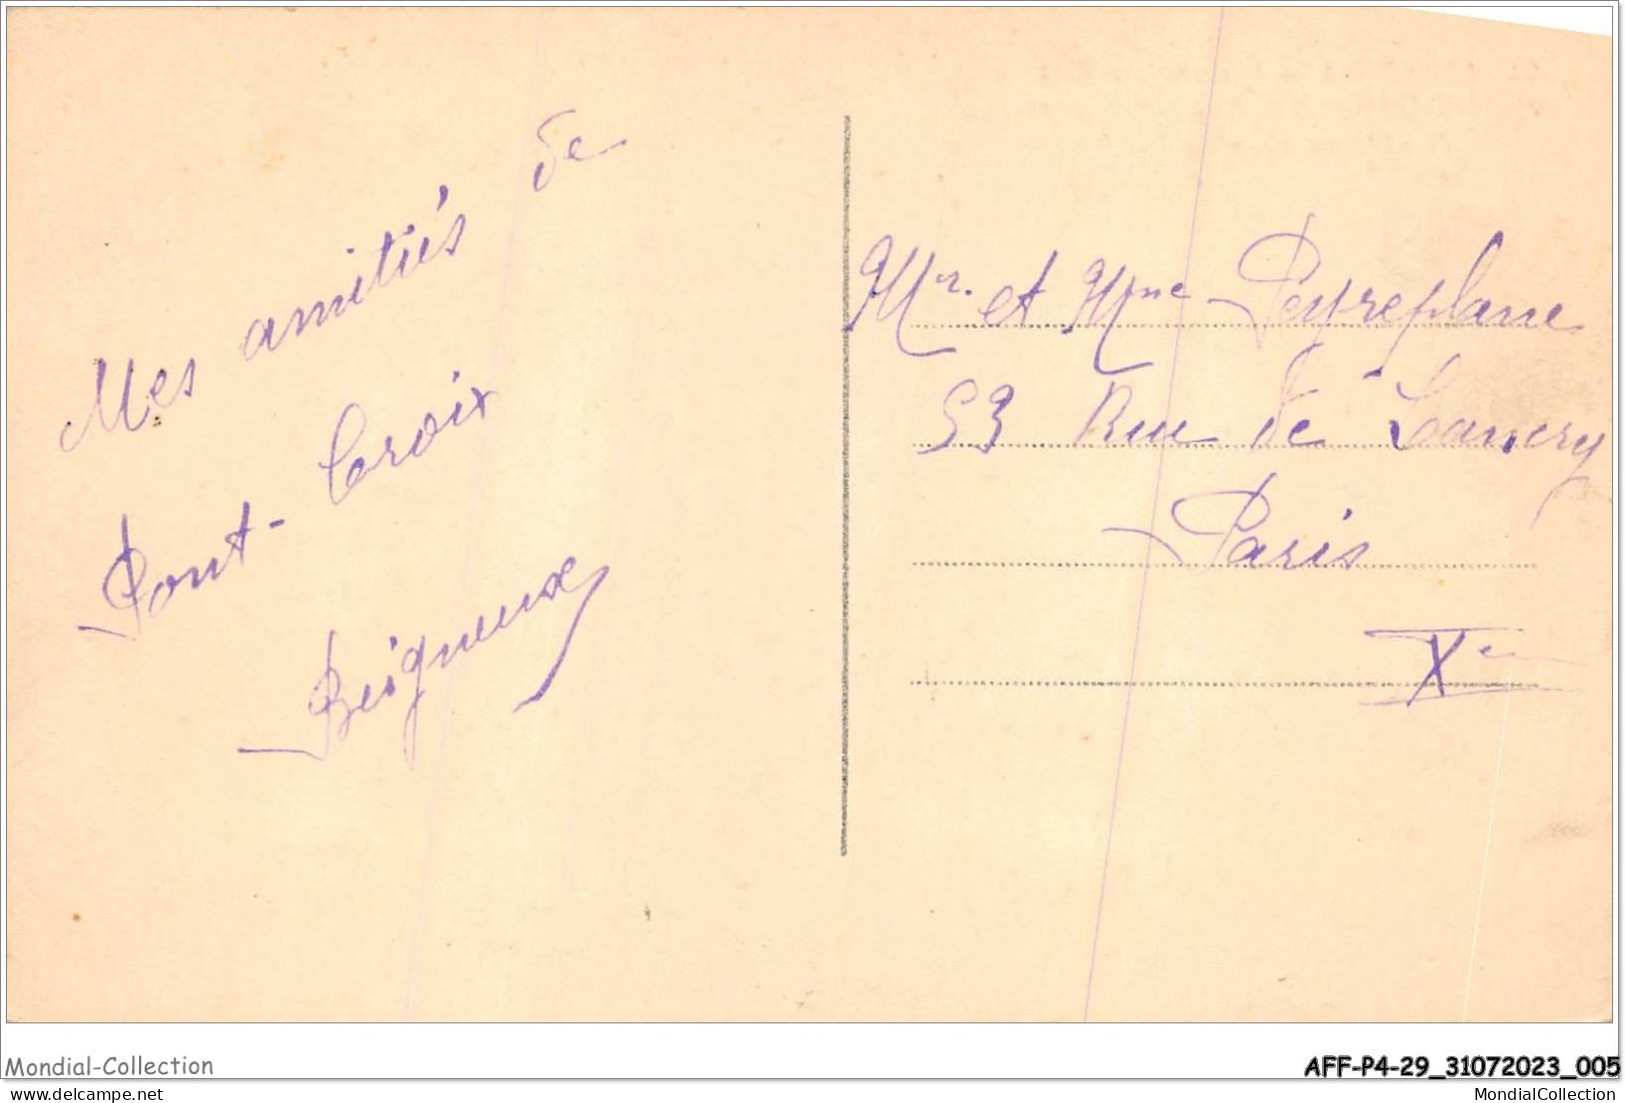 Mes amitiés de
Pont-Croix
Beigneux
Mr. et Mme Peyreplane
53 Rue de Lancry
Paris
Xe
Mondial-Collection
AFF-P4-29_31072023_005
MondialCollection